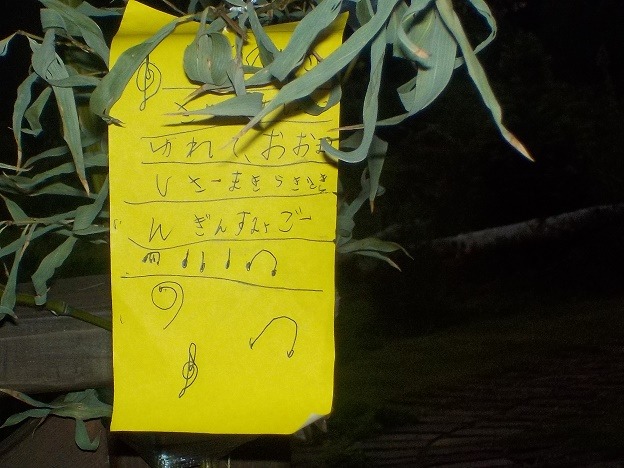 ゆれて、おお
しさーまきらきらき
ん ぎんすなごー